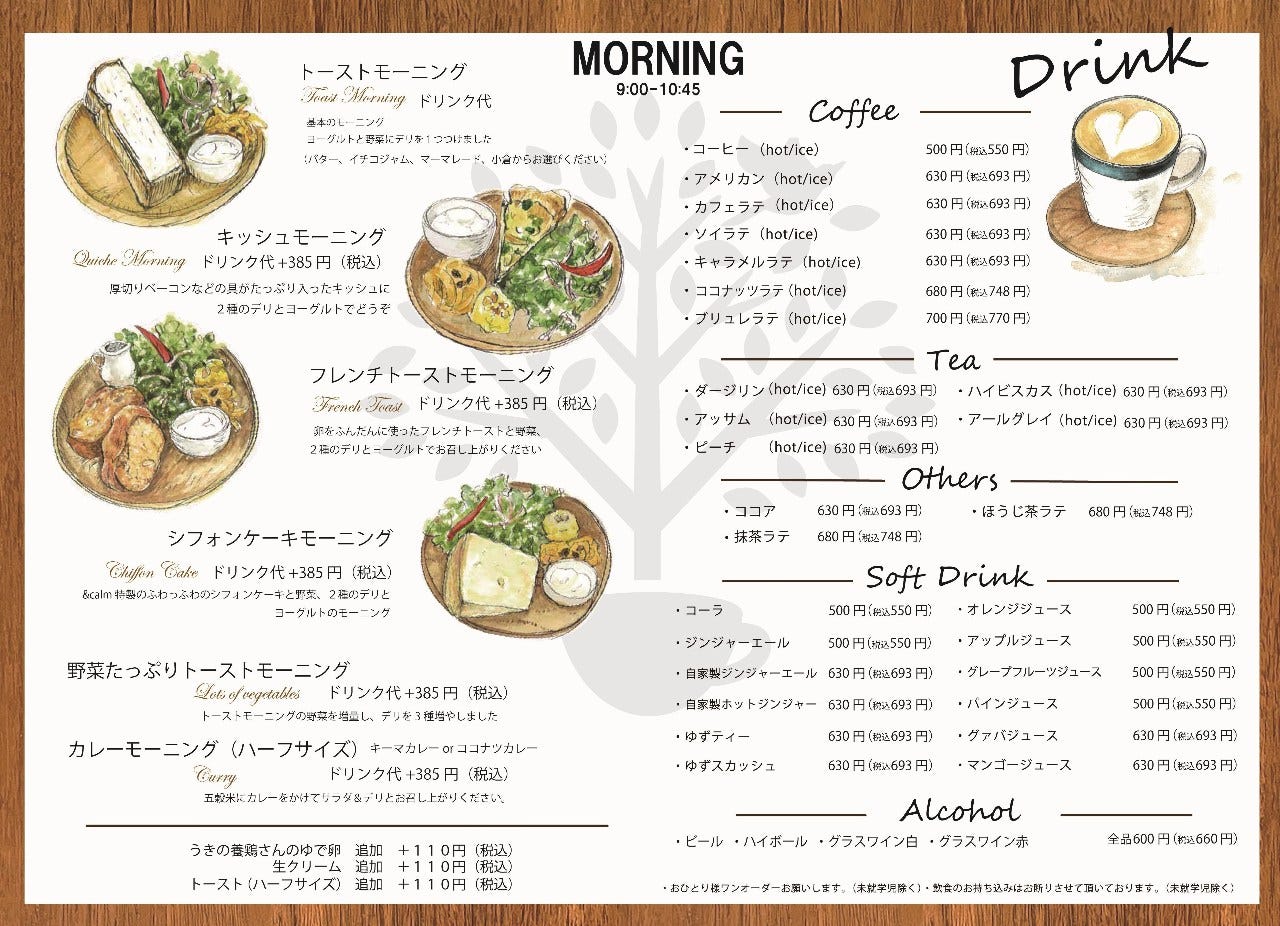 MORNING
9:00-10:45
トーストモーニング
Toast Morning ドリンク代
基本のモーニング
ヨーグルトと野菜にデリを１つつけました
（バター、イチゴジャム、マーマレード、小倉からお選びください）
キッシュモーニング
Quiche Morning ドリンク代 +385 円（税込）
厚切りベーコンなどの具がたっぷり入ったキッシュに
２種のデリとヨーグルトでどうぞ
フレンチトーストモーニング
French Toast ドリンク代 +385 円（税込）
卵をふんだんに使ったフレンチトーストと野菜、
２種のデリとヨーグルトでお召し上がりください
シフォンケーキモーニング
Chiffon Cake ドリンク代 +385 円（税込）
&calm 特製のふわっふわのシフォンケーキと野菜、２種のデリと
ヨーグルトのモーニング
野菜たっぷりトーストモーニング
Lots of vegetables ドリンク代 +385 円（税込）
トーストモーニングの野菜を増量し、デリを３種増やしました
カレーモーニング（ハーフサイズ） キーマカレー or ココナツカレー
Curry ドリンク代 +385 円（税込）
五穀米にカレーをかけてサラダ＆デリとお召し上がりください。
うきの養鶏さんのゆで卵 追加 ＋１１０円（税込）
生クリーム 追加 ＋１１０円（税込）
トースト（ハーフサイズ） 追加 ＋１１０円（税込）
Drink
Coffee
・コーヒー （hot/ice） 500 円（税込550 円）
・アメリカン（hot/ice） 630 円（税込693 円）
・カフェラテ（hot/ice） 630 円（税込693 円）
・ソイラテ（hot/ice） 630 円（税込693 円）
・キャラメルラテ（hot/ice） 630 円（税込693 円）
・ココナッツラテ（hot/ice） 680 円（税込748 円）
・ブリュレラテ（hot/ice） 700 円（税込770 円）
Tea
・ダージリン（hot/ice） 630 円（税込693 円） ・ハイビスカス（hot/ice） 630 円（税込693 円）
・アッサム （hot/ice） 630 円（税込693 円） ・アールグレイ（hot/ice） 630 円（税込693 円）
・ピーチ （hot/ice） 630 円（税込693 円）
Others
・ココア 630 円（税込693 円） ・ほうじ茶ラテ 680 円（税込748 円）
・抹茶ラテ 680 円（税込748 円）
Soft Drink
・コーラ 500 円（税込550 円） ・オレンジジュース 500 円（税込550 円）
・ジンジャーエール 500 円（税込550 円） ・アップルジュース 500 円（税込550 円）
・自家製ジンジャーエール 630 円（税込693 円） ・グレープフルーツジュース 500 円（税込550 円）
・自家製ホットジンジャー 630 円（税込693 円） ・パインジュース 500 円（税込550 円）
・ゆずティー 630 円（税込693 円） ・グァバジュース 630 円（税込693 円）
・ゆずスカッシュ 630 円（税込693 円） ・マンゴージュース 630 円（税込693 円）
Alcohol
・ビール ・ハイボール ・グラスワイン白 ・グラスワイン赤 全品600 円（税込660 円）
・おひとり様ワンオーダーお願いします。（未就学児除く）・飲食のお持ち込みはお断りさせて頂いております。（未就学児除く）